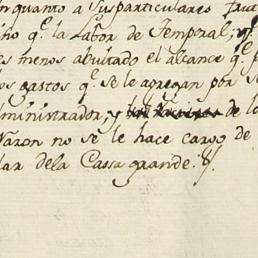 enquanto a sus particulares
cho q.e la Labor de Tempral; y
es menos abultado el alcance q.e
os gastos q.e se le agregan por se
dministrador, y de lo
Varon no se le hace cargo de
lar dela Cassa grande.